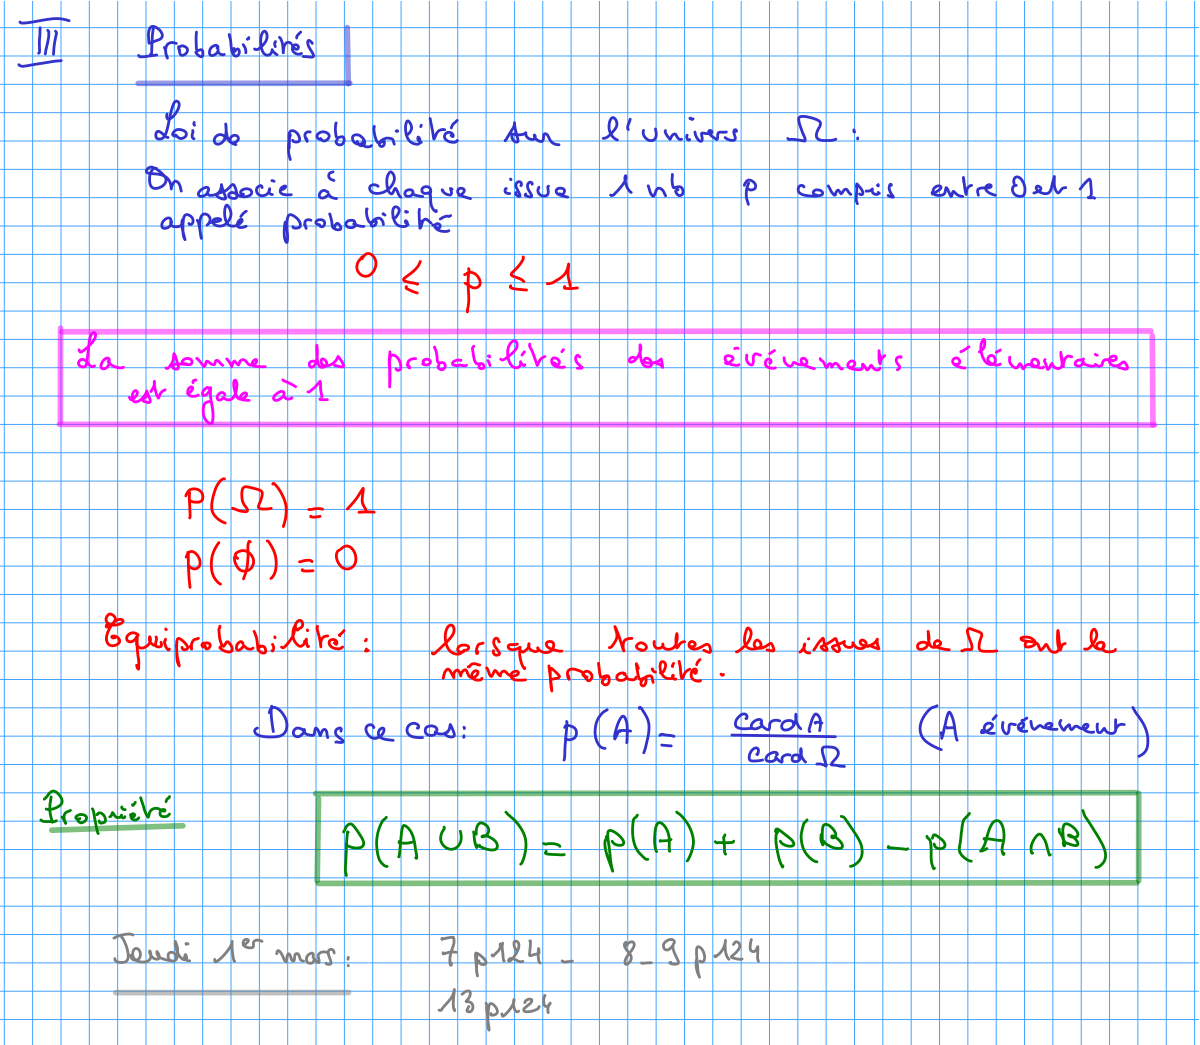 III Probabilités
Loi de probabilité sur l'univers Ω :
On associe à chaque issue 1 nb p compris entre 0 et 1
appelé probabilité
0 ≤ p ≤ 1
La somme des probabilités des événements élémentaires
est égale à 1
P(Ω) = 1
P(∅) = 0
Equiprobabilité : lorsque toutes les issues de Ω ont la
même probabilité.
Dans ce cas : p(A) = card A / card Ω (A événement)
Propriété
P(A ∪ B) = p(A) + p(B) - p(A ∩ B)
Jeudi 1er mars : 7 p124 - 8-9 p124
13 p124